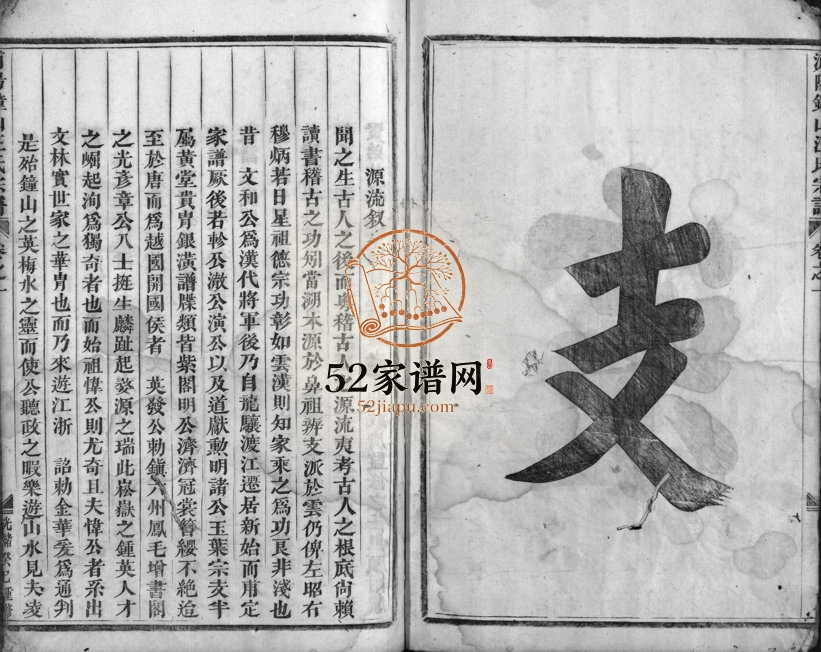 支
源流叙
聞之生古人之後而稽古人源流夷考古人之根底尙賴
讀書稽古之功矧當溯本源於鼻祖辨支派於雲仍俾左昭右
穆炳若日星祖德宗功彰如雲漢則知家乘之爲功良非淺也
昔 文和公爲漢代將軍後乃自龍驤渡江遷居新始而甫定
家譜厥後若軫公澈公演公以及道獻勳明諸公玉葉宗支半
屬黄堂貴胄銀潢譜牒類皆紫閣明公濟濟冠裳簪纓不絶迨
至於唐而爲越國開國侯者 英發公勅鎭六州鳳毛增書閣
之光彦章公八士挺生麟趾起婺源之瑞此崧嶽之鍾英人才
之崛起洵爲獨奇者也而始祖偉公則尤奇且夫偉公者系出
文林實世家之華胄也而乃來遊江浙 詔勅金華爰爲通判
是殆鐘山之英梅水之靈而使公聽政之暇樂遊山水見夫凌
宗譜 卷之一
光緒癸巳重修
52家谱网
52jiapu.com